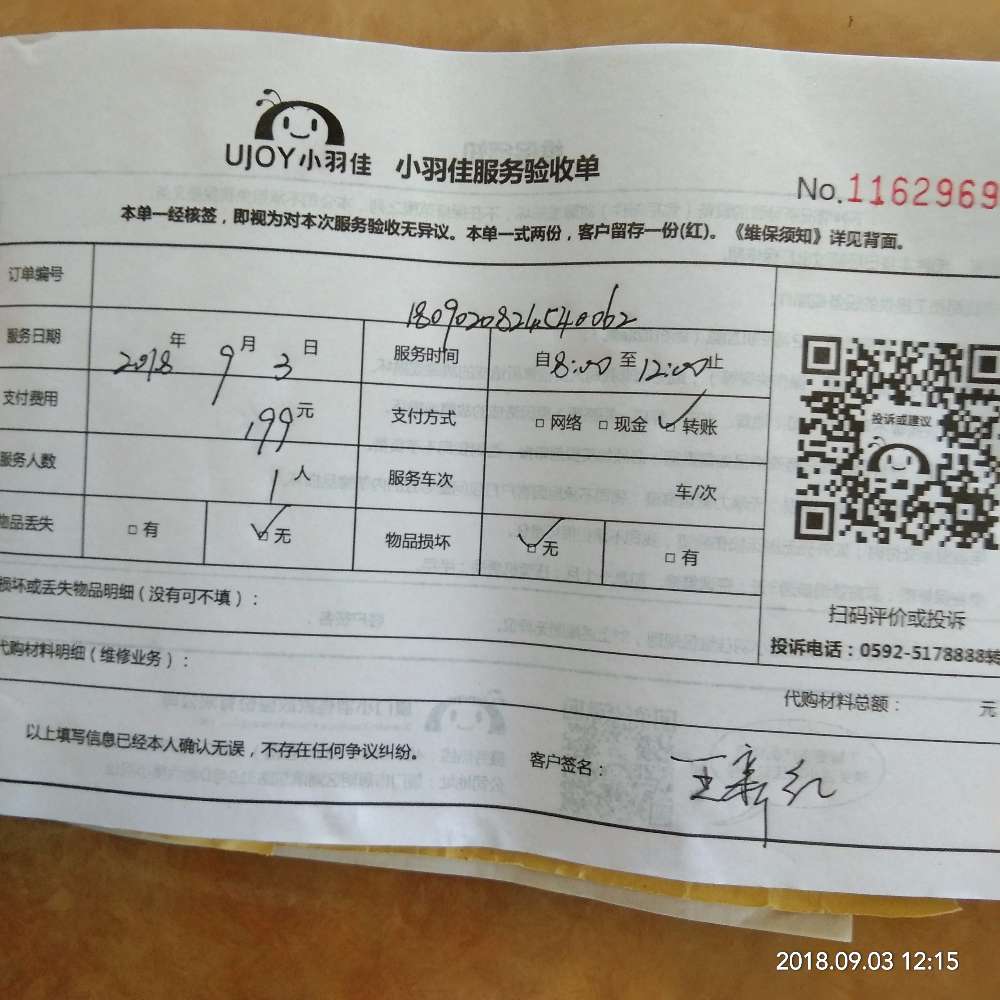 UJOY小羽佳 小羽佳服务验收单
No.1162969
本单一经核签，即视为对本次服务验收无异议。本单一式两份，客户留存一份(红)。《维保须知》详见背面。
订单编号
服务日期 2018年9月3日 服务时间 自8:00至12:00止
支付费用 199元 支付方式 □网络 □现金 ☑转账
服务人数 1人 服务车次 车/次
物品丢失 □有 ☑无 物品损坏 ☑无 □有
投诉或建议
扫码评价或投诉
投诉电话：0592-5178888转
损坏或丢失物品明细（没有可不填）：
代购材料明细（维修业务）：
代购材料总额： 元
以上填写信息已经本人确认无误，不存在任何争议纠纷。
客户签名：王新红
2018.09.03 12:15